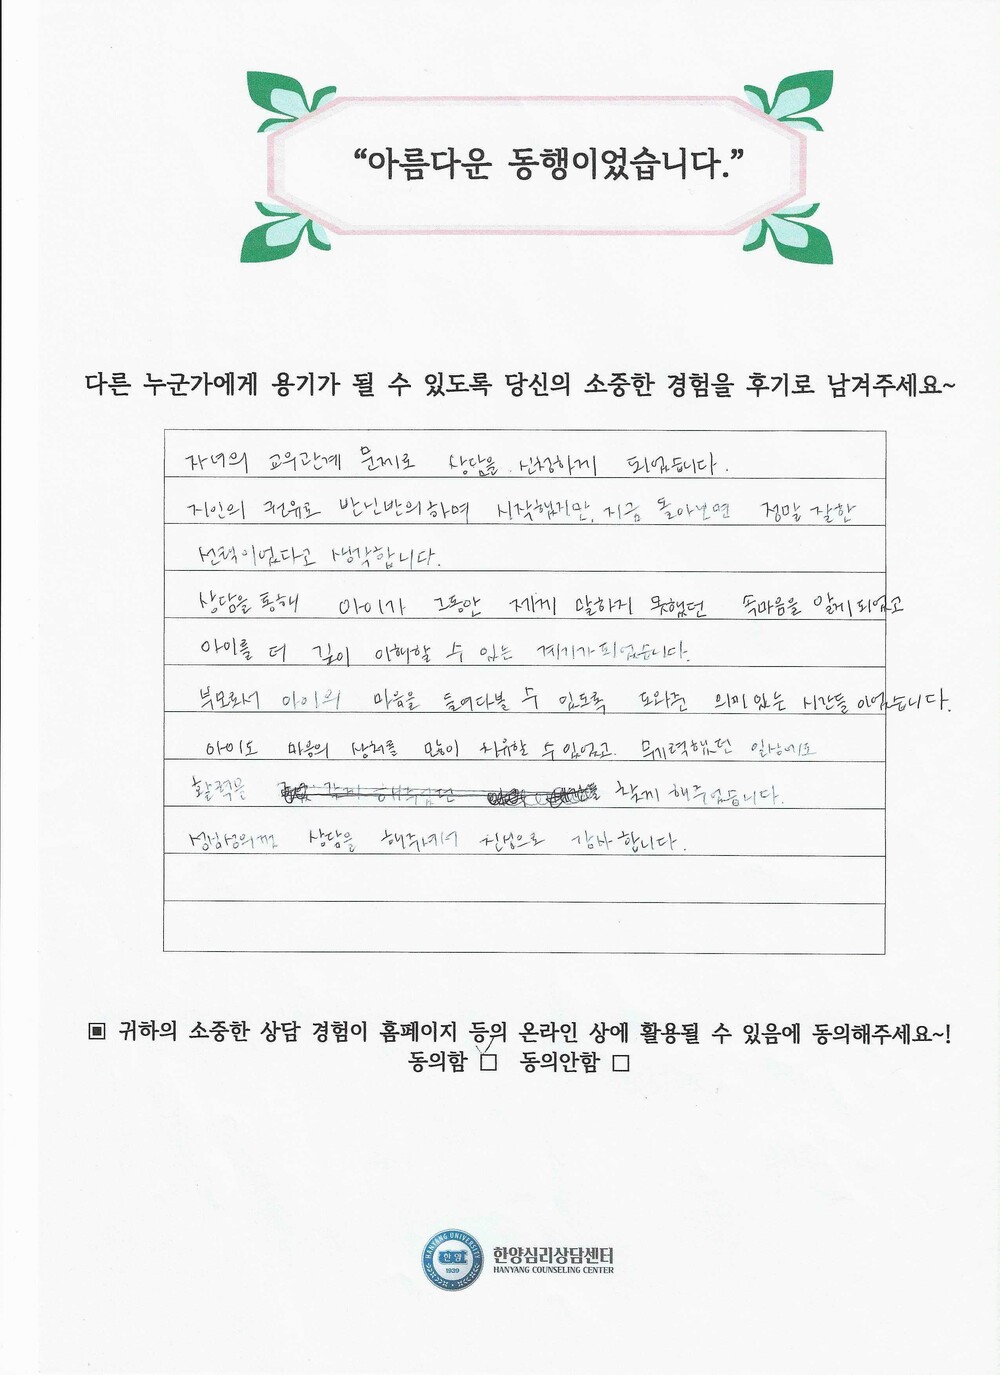 “아름다운 동행이었습니다.”
다른 누군가에게 용기가 될 수 있도록 당신의 소중한 경험을 후기로 남겨주세요~
자녀의 교우관계 문제로 상담을 신청하게 되었습니다.
지인의 권유로 반신반의하며 시작했지만, 지금 돌아보면 정말 잘한
선택이었다고 생각합니다.
상담을 통해 아이가 그동안 제게 말하지 못했던 속마음을 알게되었고
아이를 더 깊이 이해할 수 있는 계기가 되었습니다.
부모로서 아이의 마음을 들여다볼 수 있도록 도와준 의미있는 시간들이었습니다.
아이도 마음의 상처를 많이 치유할 수 있었고. 무기력했던 일상에도
활력을 찾게 해주었습니다.
성심성의껏 상담을 해주셔서 진심으로 감사합니다.
▣ 귀하의 소중한 상담 경험이 홈페이지 등의 온라인 상에 활용될 수 있음에 동의해주세요~!
동의함 ☑ 동의안함 □
HANYANG UNIVERSITY
한양
1939
한양심리상담센터
HANYANG COUNSELING CENTER